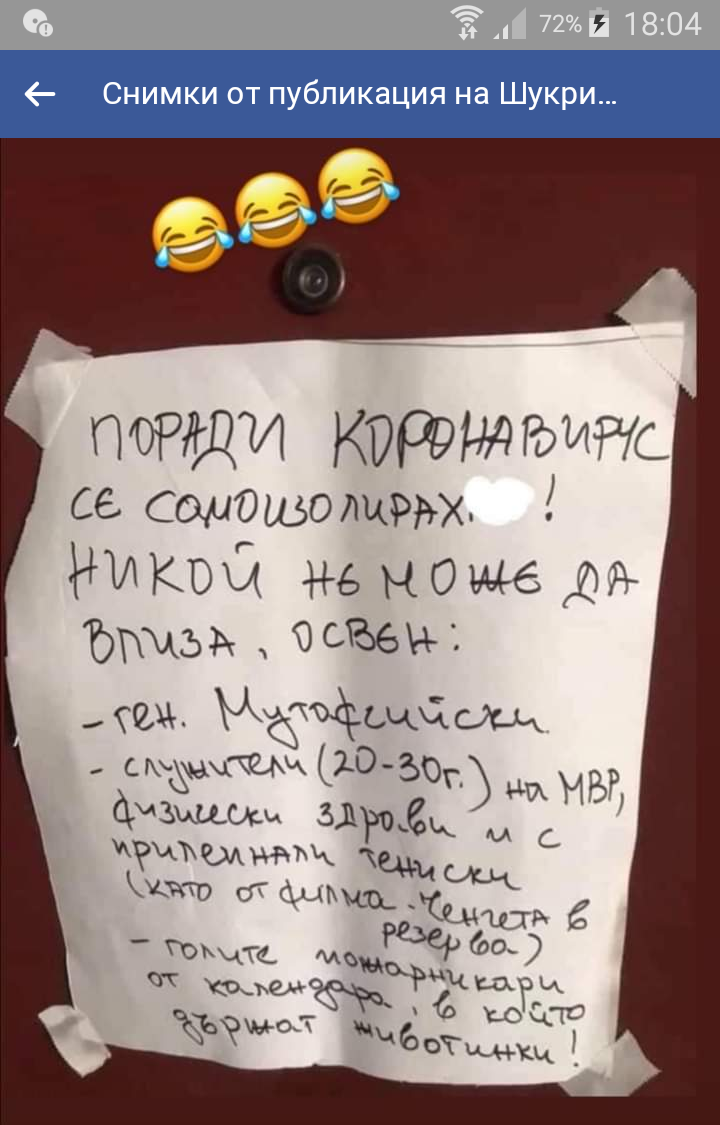 72% 18:04
Снимки от публикация на Шукри...
ПОРАДИ КОРОНАВИРУС
СЕ САМОИЗОЛИРАХ !
НИКОЙ НЕ МОЖЕ ДА
ВЛИЗА, ОСВЕН:
- ген. Мутафчийски
- служители (20-30г.) на МВР,
физически здрави и с
прилепнали тениски
(като от филма Ченгета в
резерва)
- голите пожарникари
от календара, в който
държат животинки!